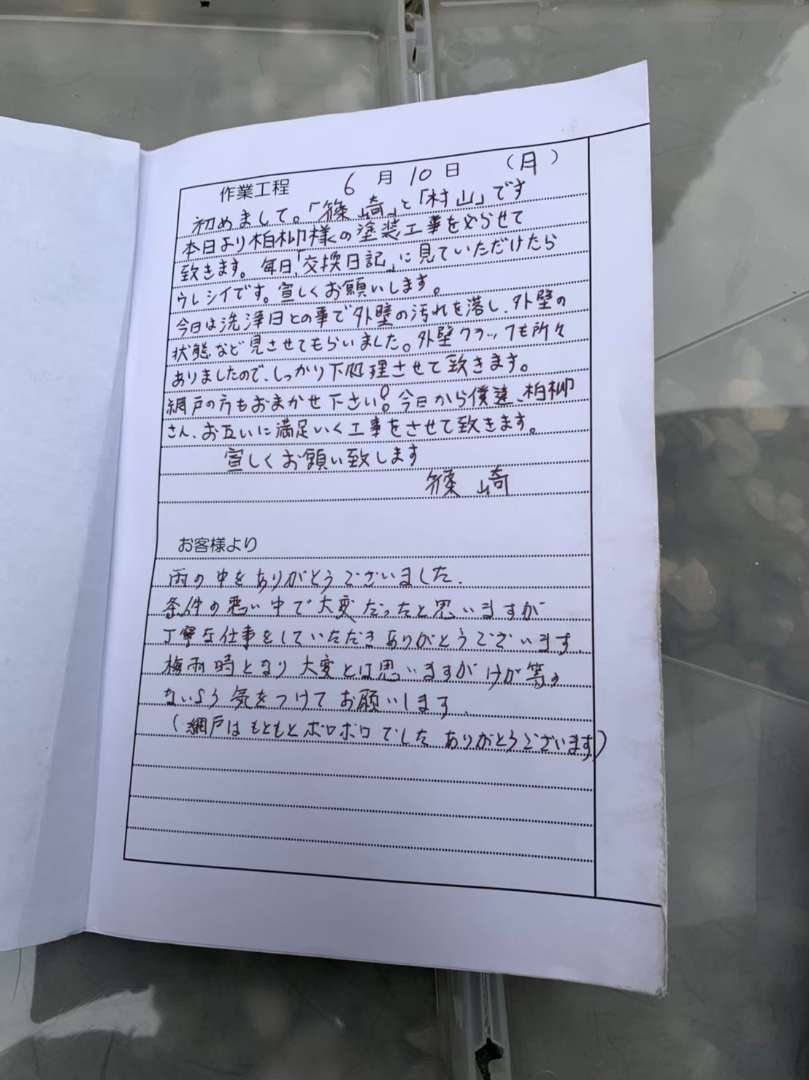 作業工程 6月10日 (月)
初めまして。「篠崎」と「村山」です
本日より柏柳様の塗装工事をやらせて
致きます。毎日、「交換日記」に見ていただけたら
ウレシイです。宜しくお願いします。
今日は洗浄日との事で外壁の汚れを落し、外壁の
状態など見させてもらいました。外壁クラックも所々
ありましたので、しっかり下処理させて致きます。
網戸の方もおまかせ下さい!今日から僕達、柏柳
さん、お互いに満足いく工事をさせて致きます。
宜しくお願い致します
篠崎
お客様より
雨の中をありがとうございました。
条件の悪い中で大変だったと思いますが
丁寧な仕事をしていただきありがとうございます。
梅雨時となり大変とは思いますがけが等の
ないよう気をつけてお願いします。
(網戸はもともとボロボロでした ありがとうございます)